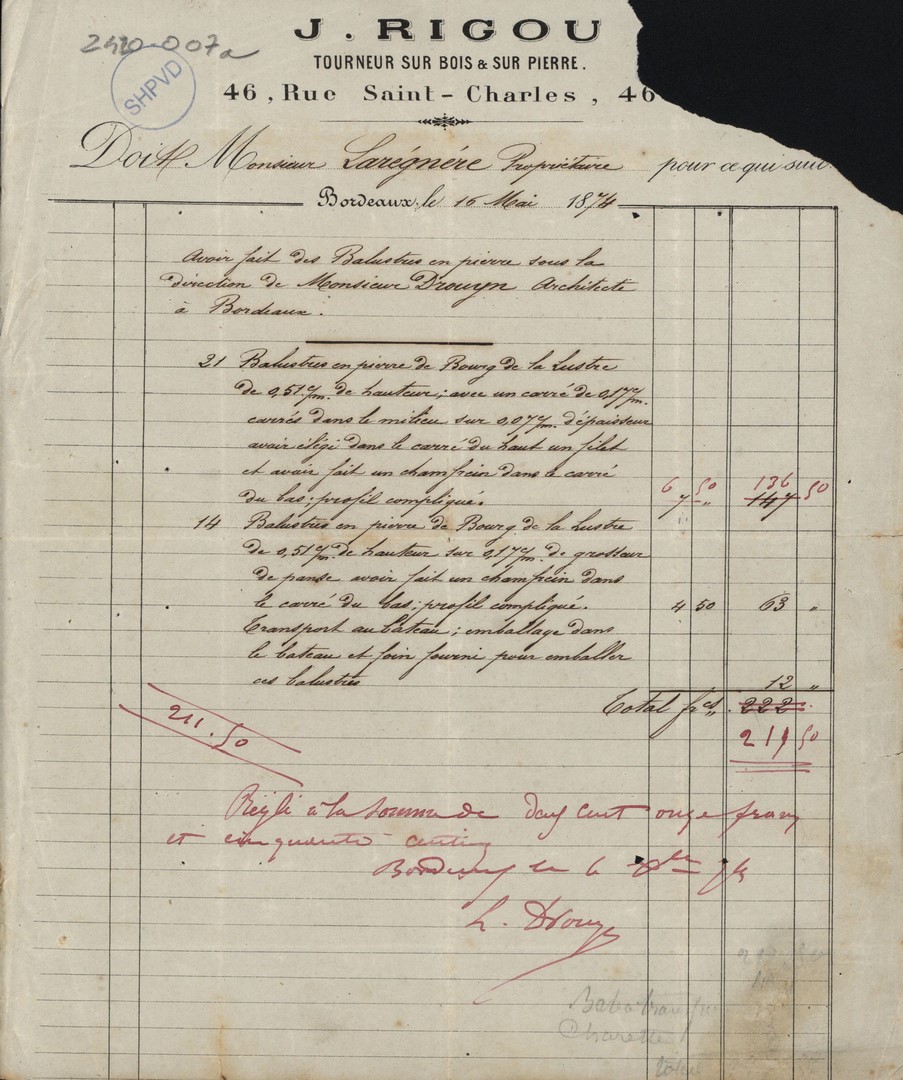 2420-007a
SHPVD
J. RIGOU
TOURNEUR SUR BOIS & SUR PIERRE.
46, Rue Saint-Charles, 46
Doit Monsieur Larégnère Propriétaire pour ce qui suit
Bordeaux, le 16 Mai 1874
Avoir fait des Balustres en pierre sous la
direction de Monsieur Drouyn Architecte
à Bordeaux.
21 Balustres en pierre de Bourg de la Lustre
de 0,51 c/m. de hauteur; avec un carré de 0,17 c/m.
carrés dans le milieu sur 0,07 c/m. d'épaisseur
avoir élégi dans le carré du haut un filet
et avoir fait un champfrein dans le carré 6 50 136 50
du bas; profil compliqué. 7 " 147
14 Balustres en pierre de Bourg de la Lustre
de 0,51 c/m de hauteur sur 0,17 c/m de grosseur
de panse avoir fait un champfrein dans
le carré du bas; profil compliqué. 4 50 63 "
Transport au bateau; emballage dans
le bateau et foin fourni pour emballer
ces balustres 12 "
Total frcs " 222 "
211.50 211 50
Réglé à la somme de deux cent onze francs
et cinquante centimes
Bordeaux le 6
L. Drouyn
Charette